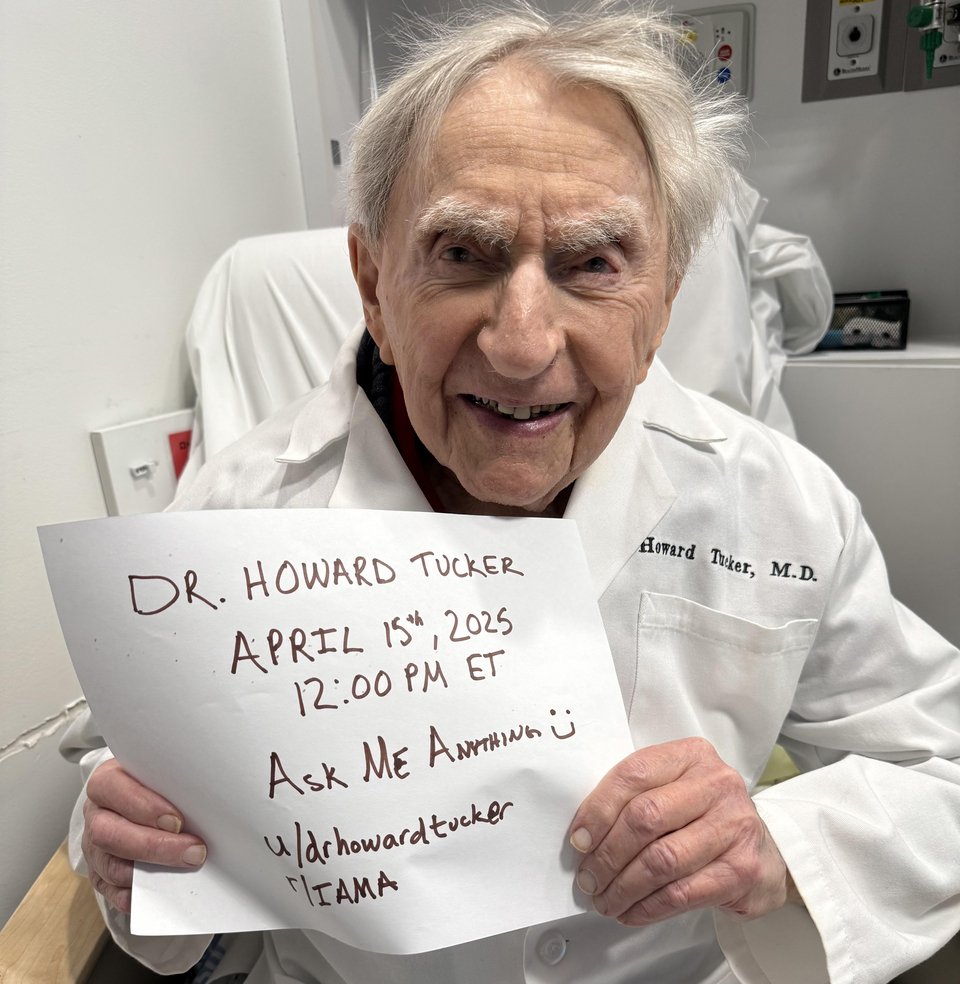 DR. HOWARD TUCKER
APRIL 15th, 2025
12:00 PM ET
ASK ME ANYTHING :)
u/drhowardtucker
r/IAMA
Howard Tucker, M.D.